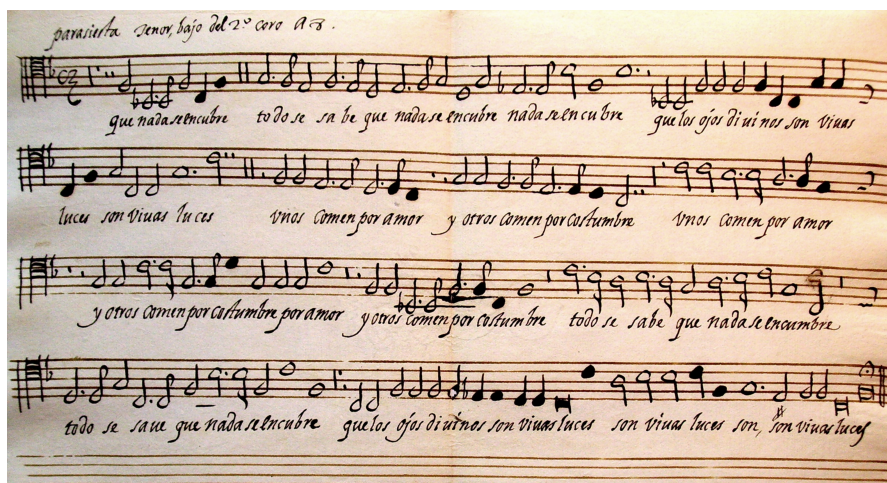 parasiesta Tenor, bajo del 2.º coro A 8.
que nada se encubre todo se sabe que nada se encubre nada se encubre que los ojos divinos son vivas
luces son vivas luces vnos comen por amor y otros comen por costumbre vnos comen por amor
y otros comen por costumbre por amor y otros comen por costumbre todo se sabe que nada se encumbre
todo se save que nada se encubre que los ojos divinos son vivas luces son vivas luces son, son vivas luces